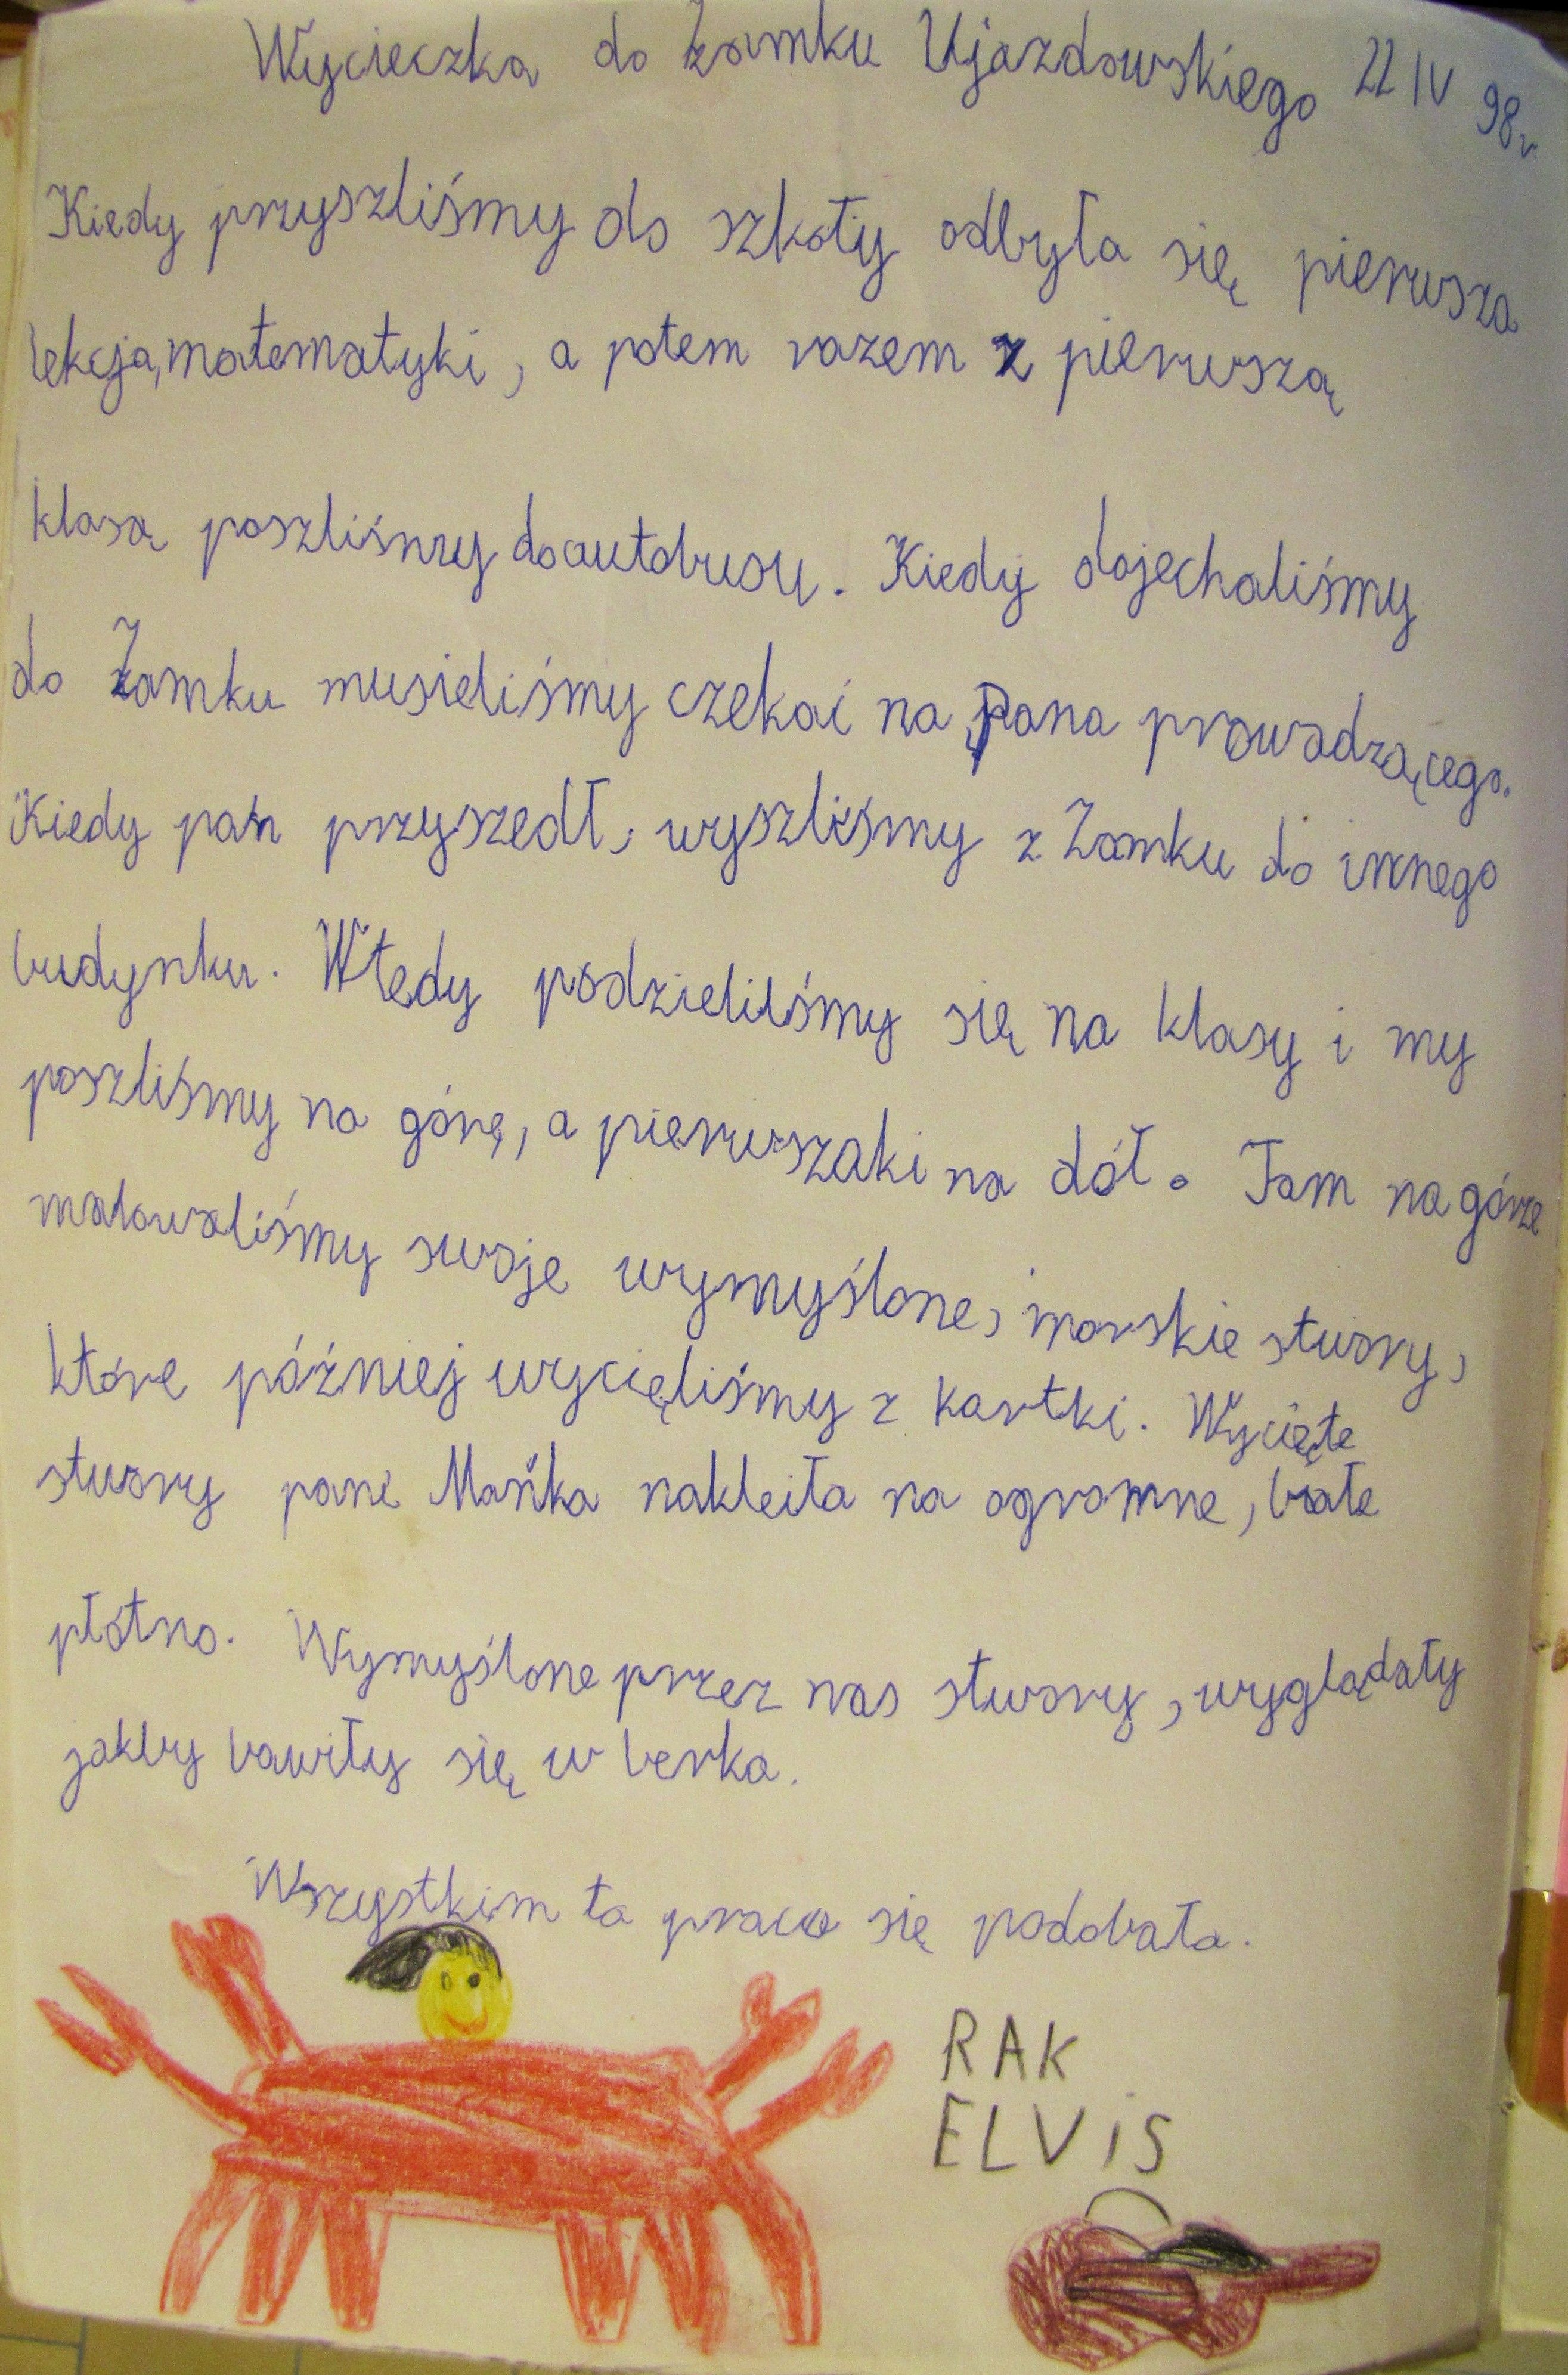 Wycieczka do Zamku Ujazdowskiego 22 IV 98r
Kiedy przyszliśmy do szkoły odbyła się pierwsza
lekcja, matematyki, a potem razem z pierwszą
klasą poszliśmy do autobusu. Kiedy dojechaliśmy
do Zamku musieliśmy czekać na pana prowadzącego.
Kiedy pan przyszedł, wyszliśmy z Zamku do innego
budynku. Wtedy podzieliliśmy się na klasy i my
poszliśmy na górę, a pierwszaki na dół. Tam na górze
malowaliśmy swoje wymyślone, morskie stwory,
które później wycięliśmy z kartki. Wycięte
stwory pani Mańka nakleiła na ogromne, białe
płótno. Wymyślone przez nas stwory, wyglądały
jakby bawiły się w berka.
Wszystkim ta praca się podobała.
RAK
ELViS